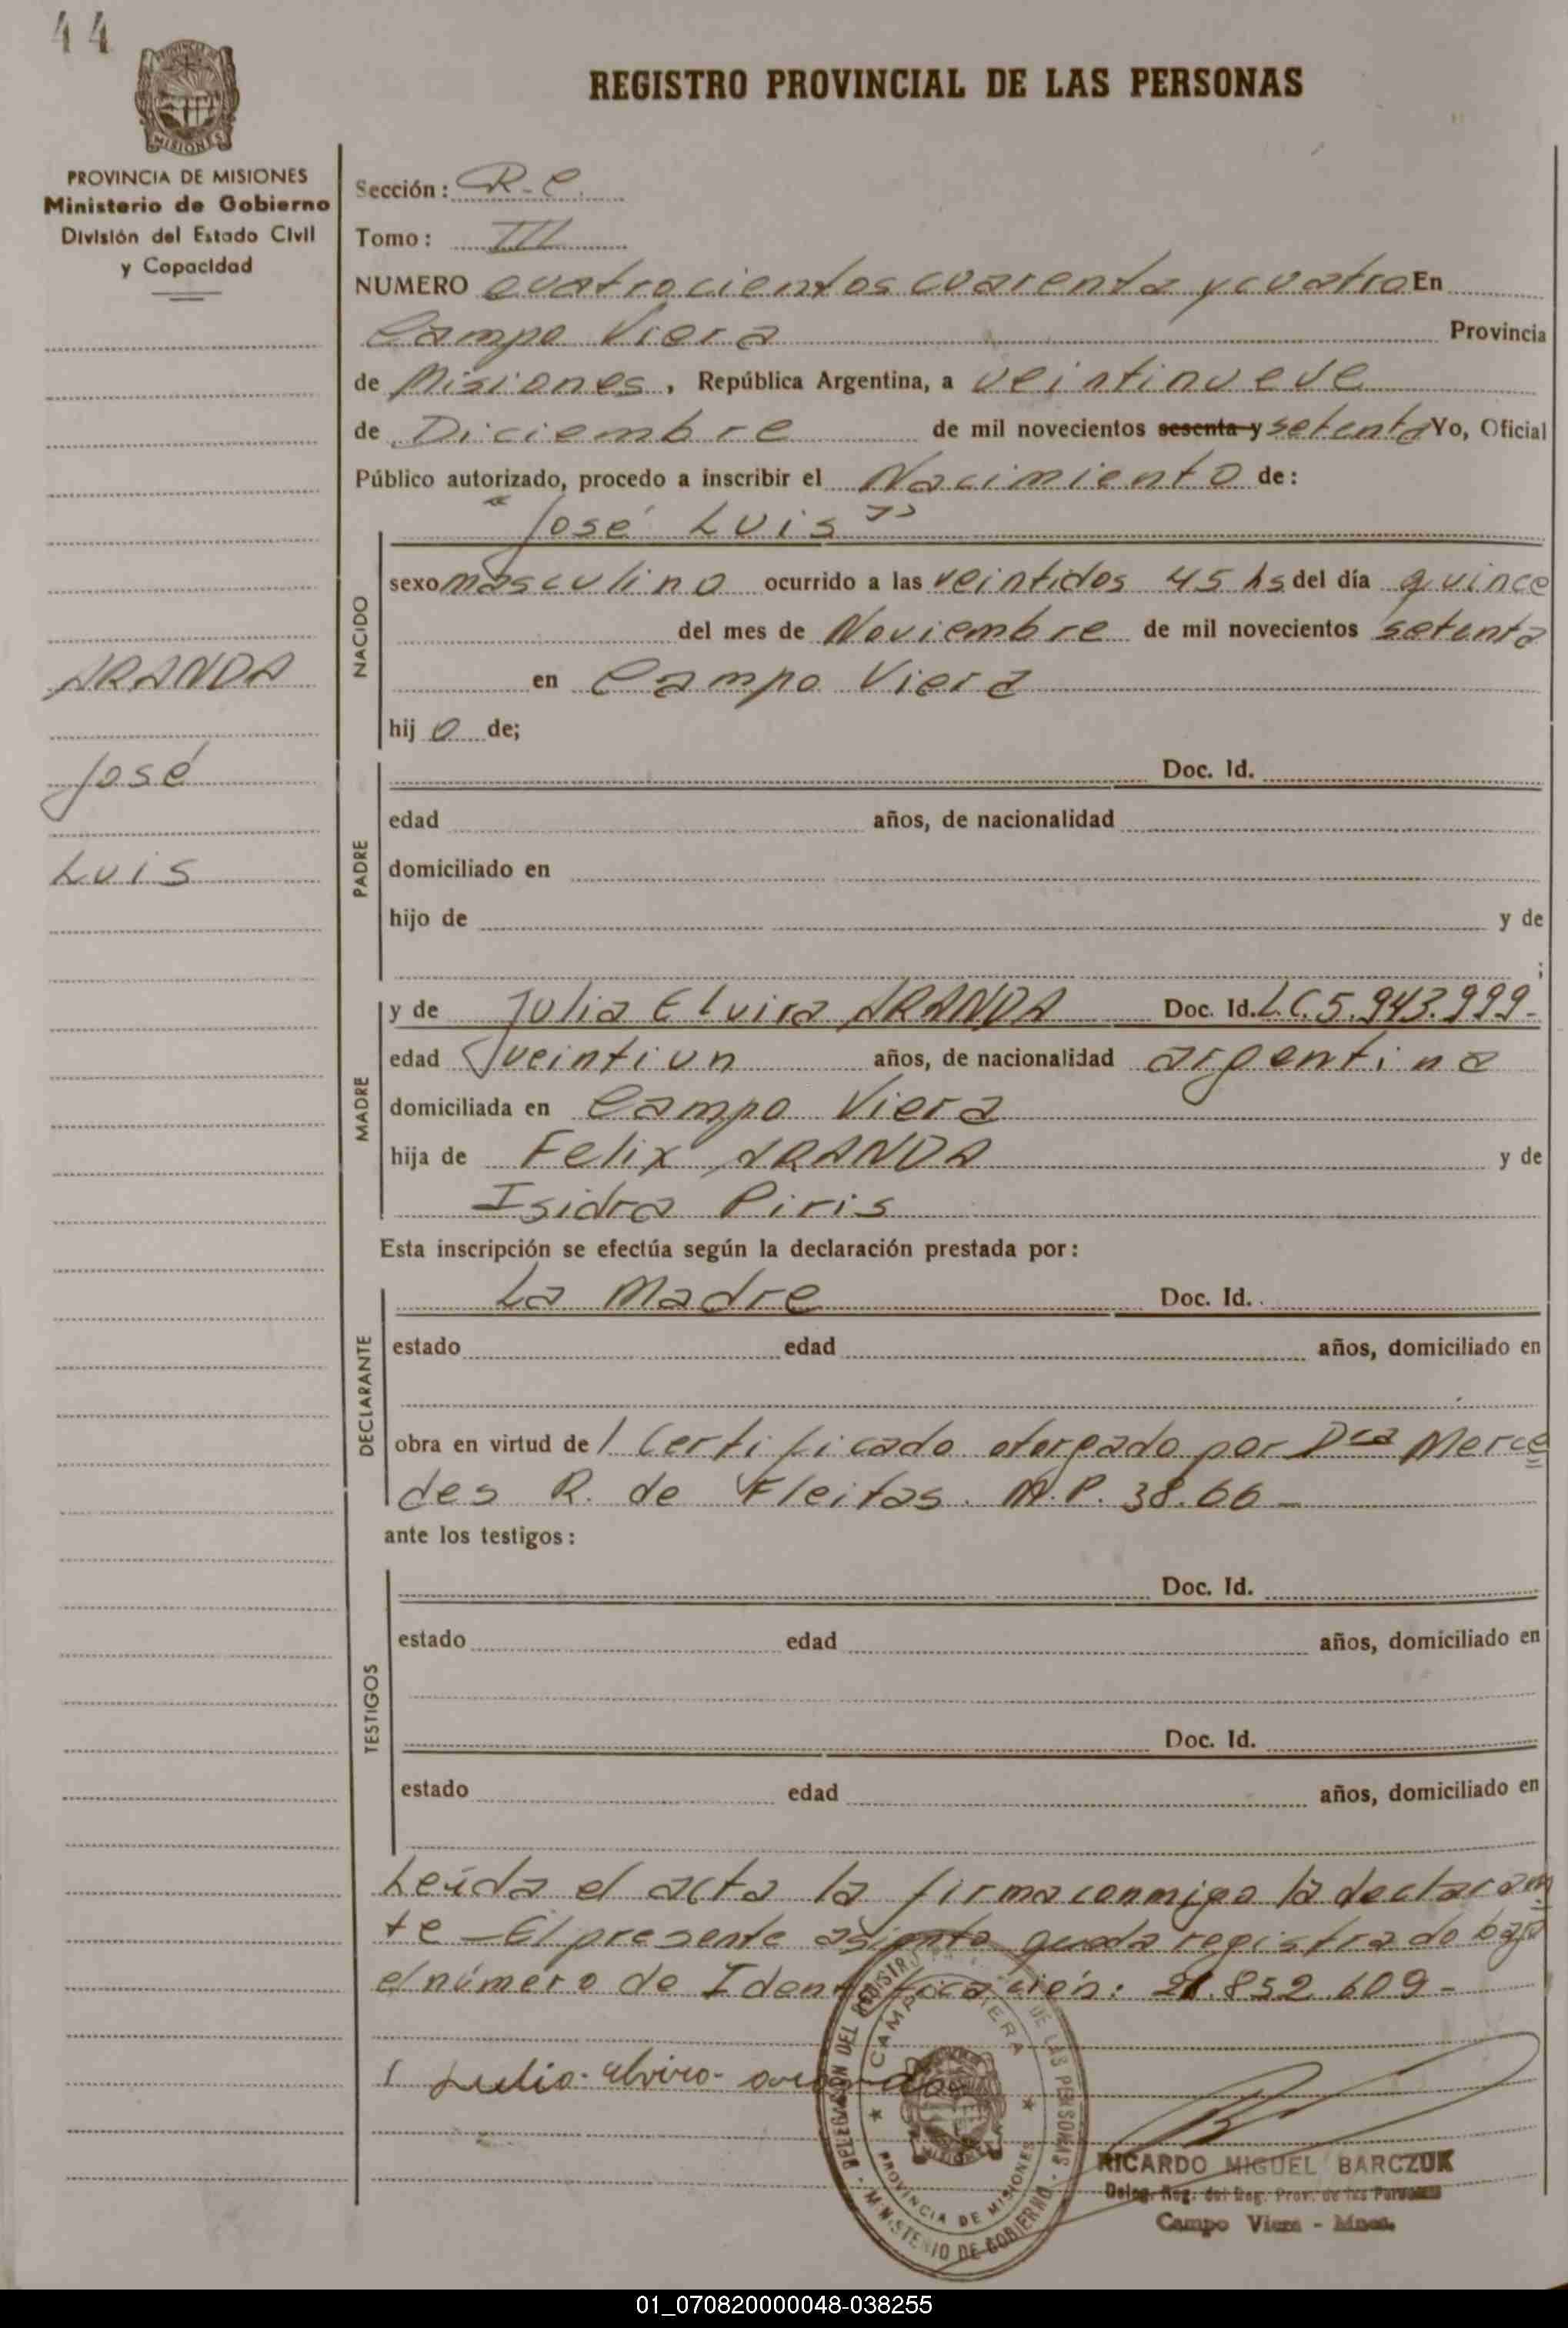 44
REGISTRO PROVINCIAL DE LAS PERSONAS
PROVINCIA DE MISIONES
Ministerio de Gobierno
División del Estado Civil
y Capacidad
ARANDA
José
Luis
Sección: R-C.
Tomo: III
NUMERO cuatrocientos cuarenta y cuatro En
Campo Viera Provincia
de Misiones, República Argentina, a veintinueve
de Diciembre de mil novecientos sesenta y setenta Yo, Oficial
Público autorizado, procedo a inscribir el Nacimiento de:
"José Luis"
NACIDO
sexo masculino ocurrido a las veintidos 45 hs del día quince
del mes de Noviembre de mil novecientos setenta
en Campo Viera
hij o de;
PADRE
Doc. Id.
edad años, de nacionalidad
domiciliado en
hijo de y de
;
MADRE
y de Julia Elvira ARANDA Doc. Id. L.C. 5.943.999-
edad veintiun años, de nacionalidad argentina
domiciliada en Campo Viera
hija de Felix ARANDA y de
Isidra Piris
Esta inscripción se efectúa según la declaración prestada por:
DECLARANTE
La Madre Doc. Id.
estado edad años, domiciliado en
obra en virtud de 1 Certificado otorgado por Dca Merce
des R. de Fleitas. M.P. 38.66-
ante los testigos:
TESTIGOS
Doc. Id.
estado edad años, domiciliado en
Doc. Id.
estado edad años, domiciliado en
Leída el acta la firma conmigo la declaran
te - El presente asiento queda registrado bajo
el número de Identificación: 21.852.609-
Julia Elvira aranda
DELEGACION DEL REGISTRO DE LAS PERSONAS - MINISTERIO DE GOBIERNO
CAMPO VIERA
PROVINCIA DE MISIONES
RICARDO MIGUEL BARCZUK
Deleg. Reg. del Reg. Prov. de las Personas
Campo Viera - Mnes.
01_070820000048-038255